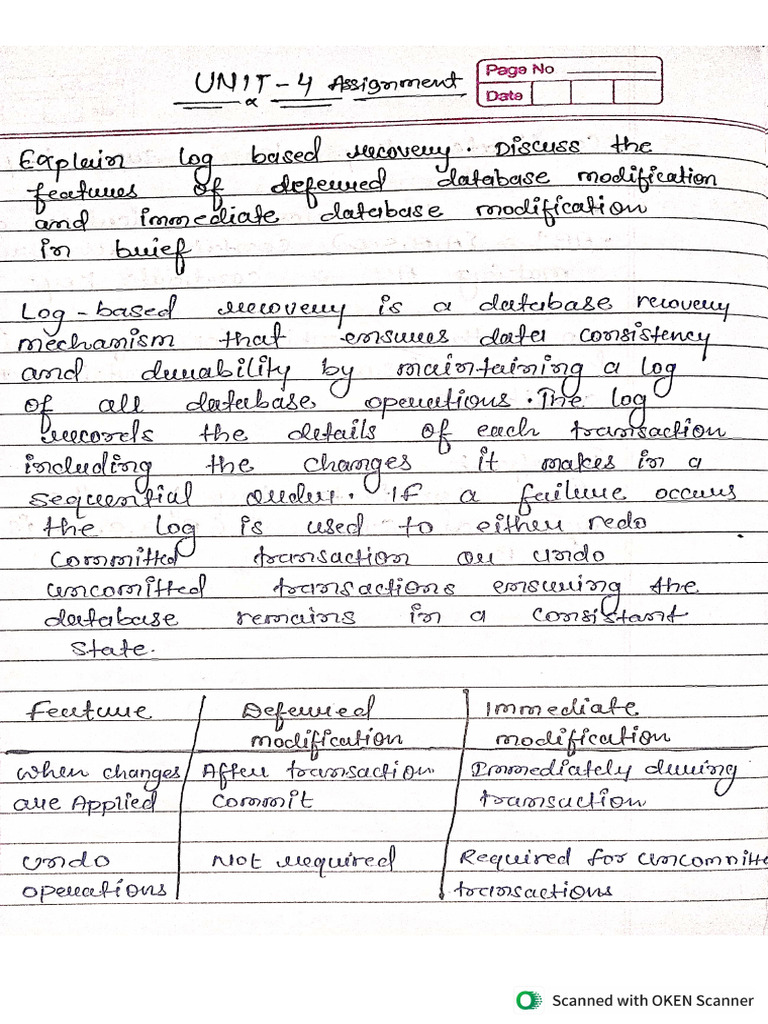 UNIT-4 Assignment
Page No
Date
Explain log based recovery. Discuss the
features of deferred database modification
and immediate database modification
in brief
Log-based recovery is a database recovery
mechanism that ensures data consistency
and durability by maintaining a log
of all database operations. The log
records the details of each transaction
including the changes it makes in a
sequential order. If a failure occurs
the log is used to either redo
committed transaction or undo
uncomitted transactions ensuring the
database remains in a consistant
state.
Feature Deferred Immediate
modification modification
When changes After transaction Immediately during
are Applied Commit transaction
Undo Not required Required for uncommitte
operations transactions
Scanned with OKEN Scanner